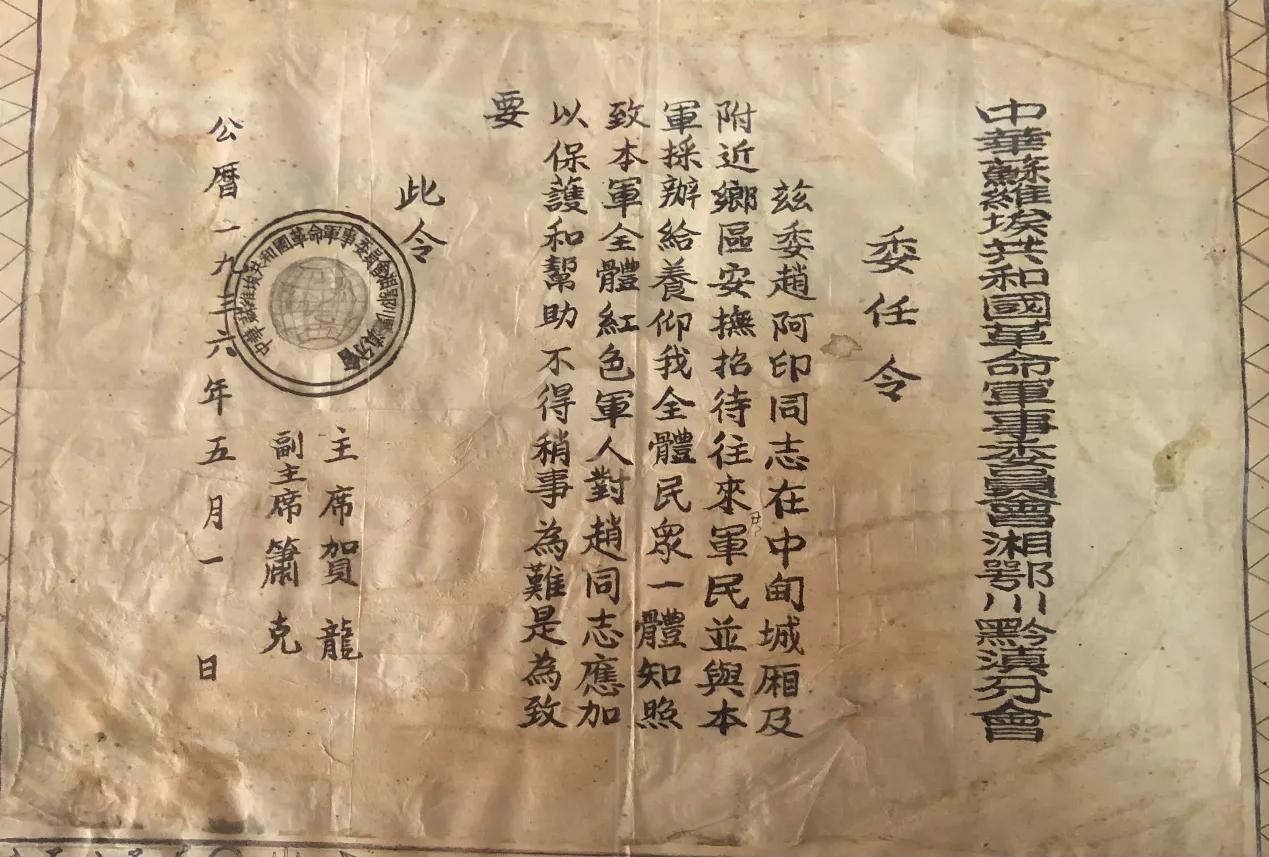 中華蘇維埃共和國革命軍事委員會湘鄂川黔滇分會
委任令
茲委趙阿印同志在中甸城厢及
附近鄉區安撫招待往來軍民並與本
軍採辦給養仰我全體民眾一體知照
致本軍全體紅色軍人對趙同志應加
以保護和幫助不得稍事為難是為致
要
此令
主席賀龍
副主席簫克
公曆一九三六年五月一日
中華蘇維埃共和國革命軍事委員會湘鄂川黔滇分會